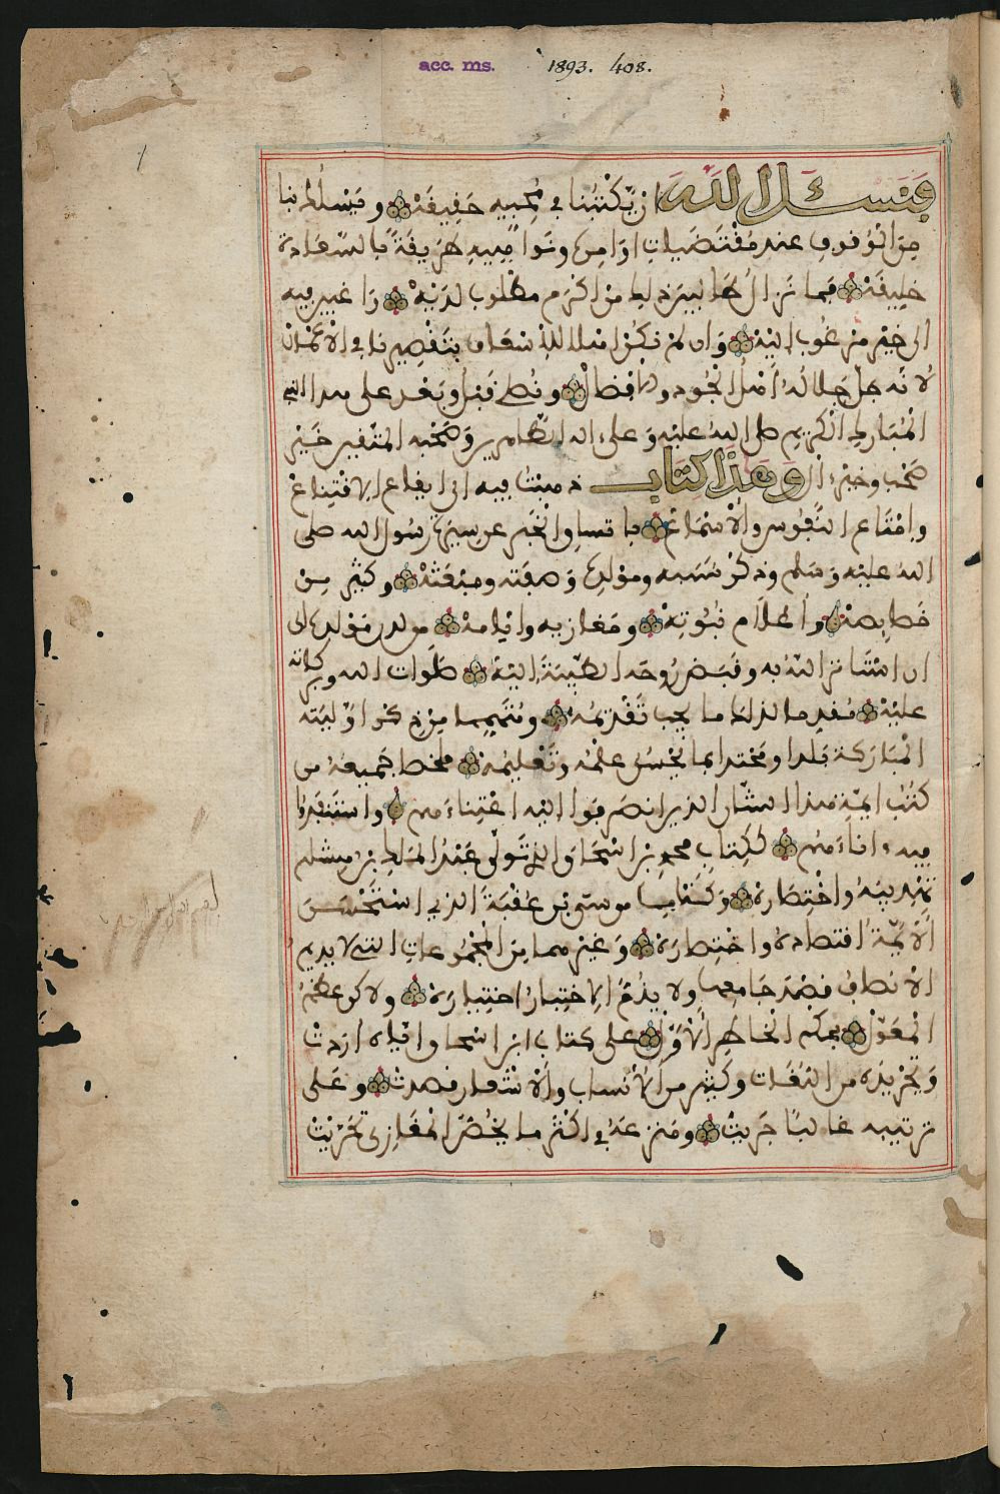 acc. ms. 1893. 408.
1
فنسئل الله ان يكتبنا في محبيه حقيقة و يسلك بنا
من الوقوف عند مقتضيات اوامره ونواهيه طريقة بالسعادة
خليقة فما نزال لطالبين ذلك من اكرم مطلوب لديه وراغبين فيه
الى خير مرغوب اليه وان لم نكن اهلا لذلك بتقصيرنا في الاعمال
لانه جل جلاله اهل الجود والافضال ونصلي قبل وبعد على هذا النبي
المبارك الكريم صلى الله عليه وعلى اله الطاهرين وصحبه المنتخبين خير
صحب وخير ال وهذا كتاب ذهبت فيه الى ايقاع الاقناع
وامتاع النفوس والاسماع باتساق الخبر عن سيرة رسول الله صلى
الله عليه وسلم وذكر نسبه ومولده وصفته ومبعثه وكثير من
خصائصه واعلام نبوته ومغازيه وايامه من لدن مولده الى
ان استاثر الله به وقبض روحه الطيبة اليه صلوات الله وبركاته
عليه مقدما لذلك ما يجب تقديمه ومتمما من ذكر اوليته
المباركة بلدا ومحتدا بما يحسن علمه وتعليمه ملخصا جميعه من
كتب ايمة هذا الشان الذين صرفوا اليه اعتناءهم واستنفدوا
فيه ءاناءهم ككتاب محمد بن اسحاق الذي تولى عبد الملك بن هشام
تهذيبه واختصاره وكتاب موسى بن عقبة الذي استحسن
الايمة اقتصاده واختصاره وغيرهما من المجموعات التي لا يذم
الانصاف قصد جامعها ولا يذم الاختيار اختياره ولكن عظم
المعول بحكم الخاطر الاول على كتاب ابن اسحاق اياه اردت
وتجريده من اللغات وكثير من الانساب والاشعار قصدت وعلى
ترتيبه غالبا جريت ومنزعه في اكثر ما يخص المغازي تحريت